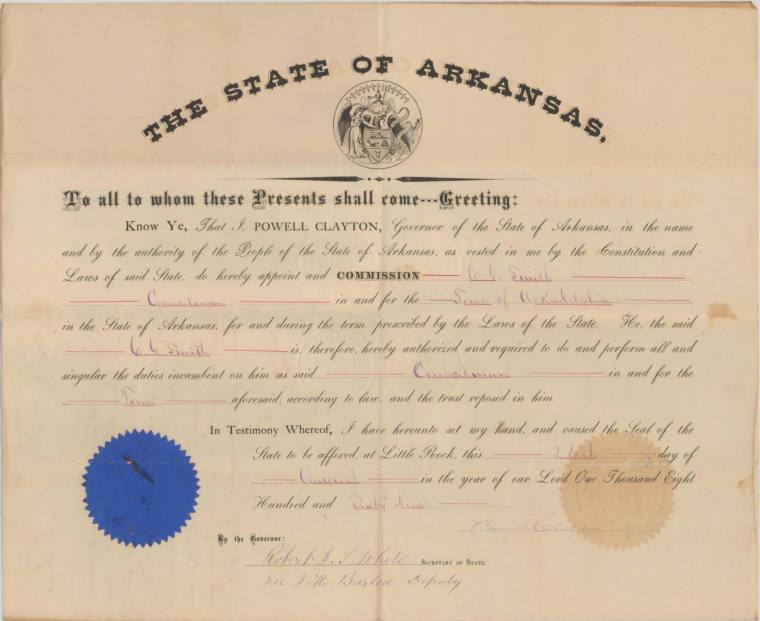 THE STATE OF ARKANSAS,
To all to whom these Presents shall come---Greeting:
Know Ye, That I, POWELL CLAYTON, Governor of the State of Arkansas, in the name
and by the authority of the People of the State of Arkansas, as vested in me by the Constitution and
Laws of said State, do hereby appoint and COMMISSION C. G. Smith
Councilman in and for the Town of Arkadelphia
in the State of Arkansas, for and during the term prescribed by the Laws of the State. He, the said
C. G. Smith is, therefore, hereby authorized and required to do and perform all and
singular the duties incumbent on him as said Councilman in and for the
Town aforesaid, according to law, and the trust reposed in him.
In Testimony Whereof, I have hereunto set my hand, and caused the Seal of the
State to be affixed, at Little Rock, this day of
August in the year of our Lord One Thousand Eight
Hundred and Sixty Nine
Powell Clayton
By the Governor:
Robert J. T. White SECRETARY OF STATE.
per J. H. Barton Deputy